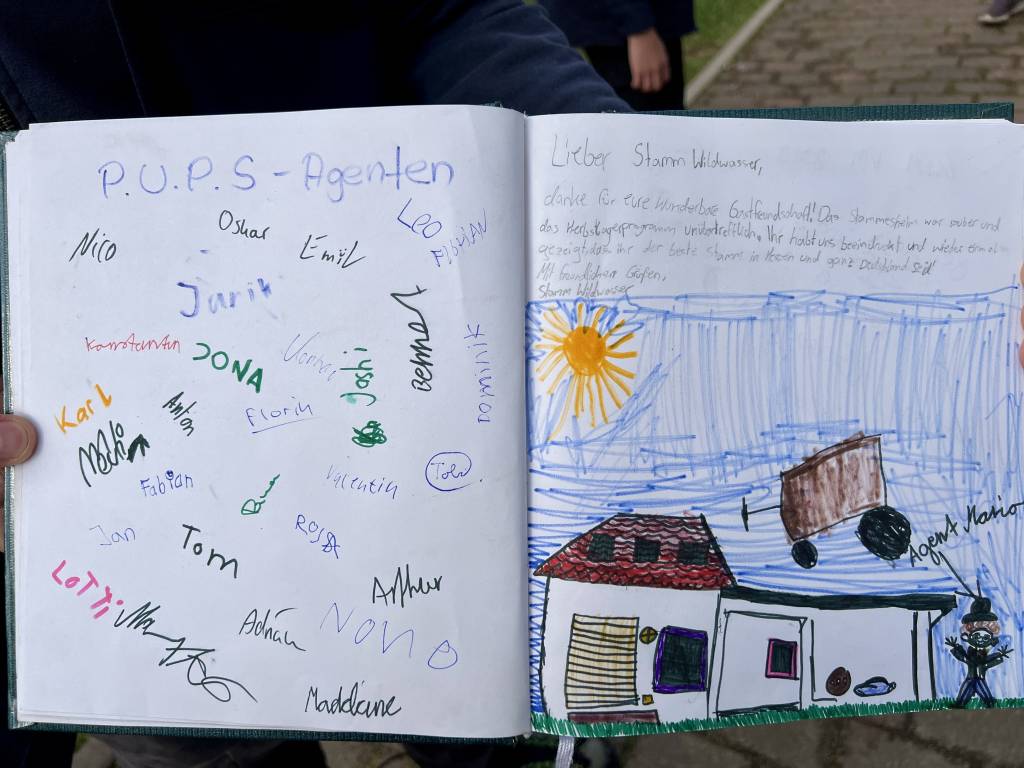 P.U.P.S - Agenten
Nico
Oskar
Emil
Leo
Florian
Jarik
Konstantin
JONA
Joshi
Bennet
Dominik
Karl
Anton
Florin
Fabian
Valentin
Jan
Tom
Rossa
Lotti
Arthur
Adrian
Nono
Madeleine
Lieber Stamm Wildwasser,
danke für eure wunderbare Gastfreundschaft! Das Stammesheim war sauber und
das Herbstlagerprogramm unübertrefflich. Ihr habt uns beeindruckt und wieder einmal
gezeigt, dass ihr der beste Stamm in Hessen und ganz Deutschland seid!
Mit freundlichen Grüßen,
Stamm Wildwasser
Agent Mario